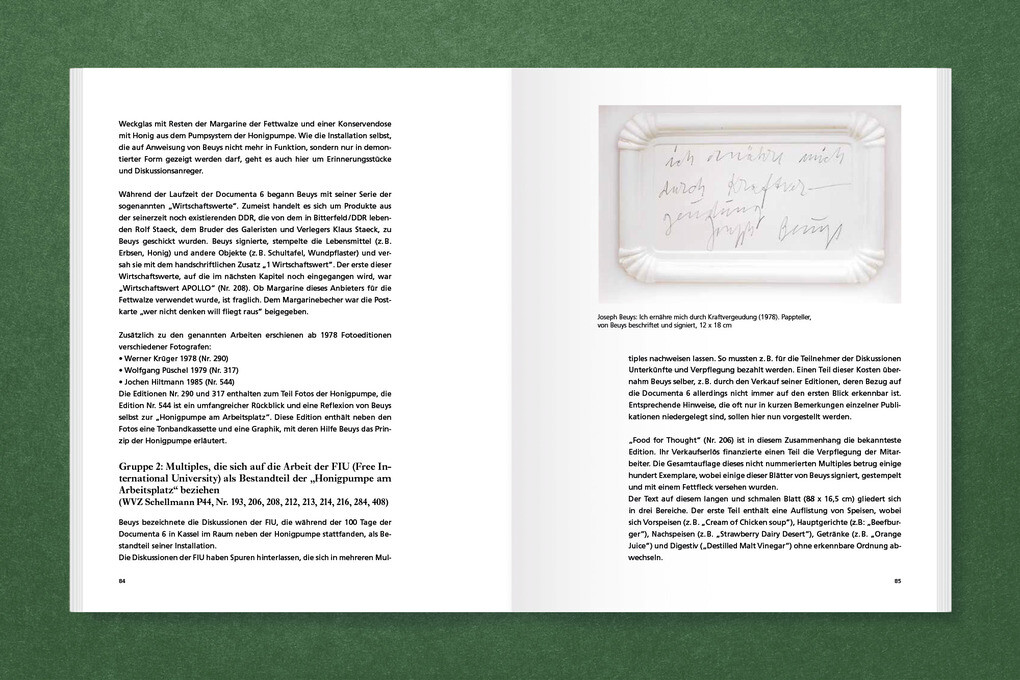 Weckglas mit Resten der Margarine der Fettwalze und einer Konservendose
mit Honig aus dem Pumpsystem der Honigpumpe. Wie die Installation selbst,
die auf Anweisung von Beuys nicht mehr in Funktion, sondern nur in demon-
tierter Form gezeigt werden darf, geht es auch hier um Erinnerungsstücke
und Diskussionsanreger.
Während der Laufzeit der Documenta 6 begann Beuys mit seiner Serie der
sogenannten „Wirtschaftswerte“. Zumeist handelt es sich um Produkte aus
der seinerzeit noch existierenden DDR, die von dem in Bitterfeld/DDR leben-
den Rolf Staeck, dem Bruder des Galeristen und Verlegers Klaus Staeck, zu
Beuys geschickt wurden. Beuys signierte, stempelte die Lebensmittel (z.B.
Erbsen, Honig) und andere Objekte (z.B. Schultafel, Wundpflaster) und ver-
sah sie mit dem handschriftlichen Zusatz „1 Wirtschaftswert“. Der erste dieser
Wirtschaftswerte, auf die im nächsten Kapitel noch eingegangen wird, war
„Wirtschaftswert APOLLO“ (Nr. 208). Ob Margarine dieses Anbieters für die
Fettwalze verwendet wurde, ist fraglich. Dem Margarinebecher war die Post-
karte „wer nicht denken will fliegt raus“ beigegeben.
Zusätzlich zu den genannten Arbeiten erschienen ab 1978 Fotoeditionen
verschiedener Fotografen:
• Werner Krüger 1978 (Nr. 290)
• Wolfgang Püschel 1979 (Nr. 317)
• Jochen Hiltmann 1985 (Nr. 544)
Die Editionen Nr. 290 und 317 enthalten zum Teil Fotos der Honigpumpe, die
Edition Nr. 544 ist ein umfangreicher Rückblick und eine Reflexion von Beuys
selbst zur „Honigpumpe am Arbeitsplatz“. Diese Edition enthält neben den
Fotos eine Tonbandkassette und eine Graphik, mit deren Hilfe Beuys das Prin-
zip der Honigpumpe erläutert.
Gruppe 2: Multiples, die sich auf die Arbeit der FIU (Free In-
ternational University) als Bestandteil der „Honigpumpe am
Arbeitsplatz“ beziehen
(WVZ Schellmann P44, Nr. 193, 206, 208, 212, 213, 214, 216, 284, 408)
Beuys bezeichnete die Diskussionen der FIU, die während der 100 Tage der
Documenta 6 in Kassel im Raum neben der Honigpumpe stattfanden, als Be-
standteil seiner Installation.
Die Diskussionen der FIU haben Spuren hinterlassen, die sich in mehreren Mul-
84
ich ernähre mich
durch Kraftver-
geudung
Joseph Beuys
Joseph Beuys: Ich ernähre mich durch Kraftvergeudung (1978). Pappteller,
von Beuys beschriftet und signiert, 12 x 18 cm
tiples nachweisen lassen. So mussten z.B. für die Teilnehmer der Diskussionen
Unterkünfte und Verpflegung bezahlt werden. Einen Teil dieser Kosten über-
nahm Beuys selber, z.B. durch den Verkauf seiner Editionen, deren Bezug auf
die Documenta 6 allerdings nicht immer auf den ersten Blick erkennbar ist.
Entsprechende Hinweise, die oft nur in kurzen Bemerkungen einzelner Publi-
kationen niedergelegt sind, sollen hier nun vorgestellt werden.
„Food for Thought“ (Nr. 206) ist in diesem Zusammenhang die bekannteste
Edition. Ihr Verkaufserlös finanzierte einen Teil die Verpflegung der Mitar-
beiter. Die Gesamtauflage dieses nicht nummerierten Multiples betrug einige
hundert Exemplare, wobei einige dieser Blätter von Beuys signiert, gestempelt
und mit einem Fettfleck versehen wurden.
Der Text auf diesem langen und schmalen Blatt (88 x 16,5 cm) gliedert sich
in drei Bereiche. Der erste Teil enthält eine Auflistung von Speisen, wobei
sich Vorspeisen (z.B. „Cream of Chicken soup“), Hauptgerichte (z.B: „Beefbur-
ger“), Nachspeisen (z.B. „Strawberry Dairy Desert“), Getränke (z.B. „Orange
Juice“) und Digestiv („Destilled Malt Vinegar“) ohne erkennbare Ordnung ab-
wechseln.
85